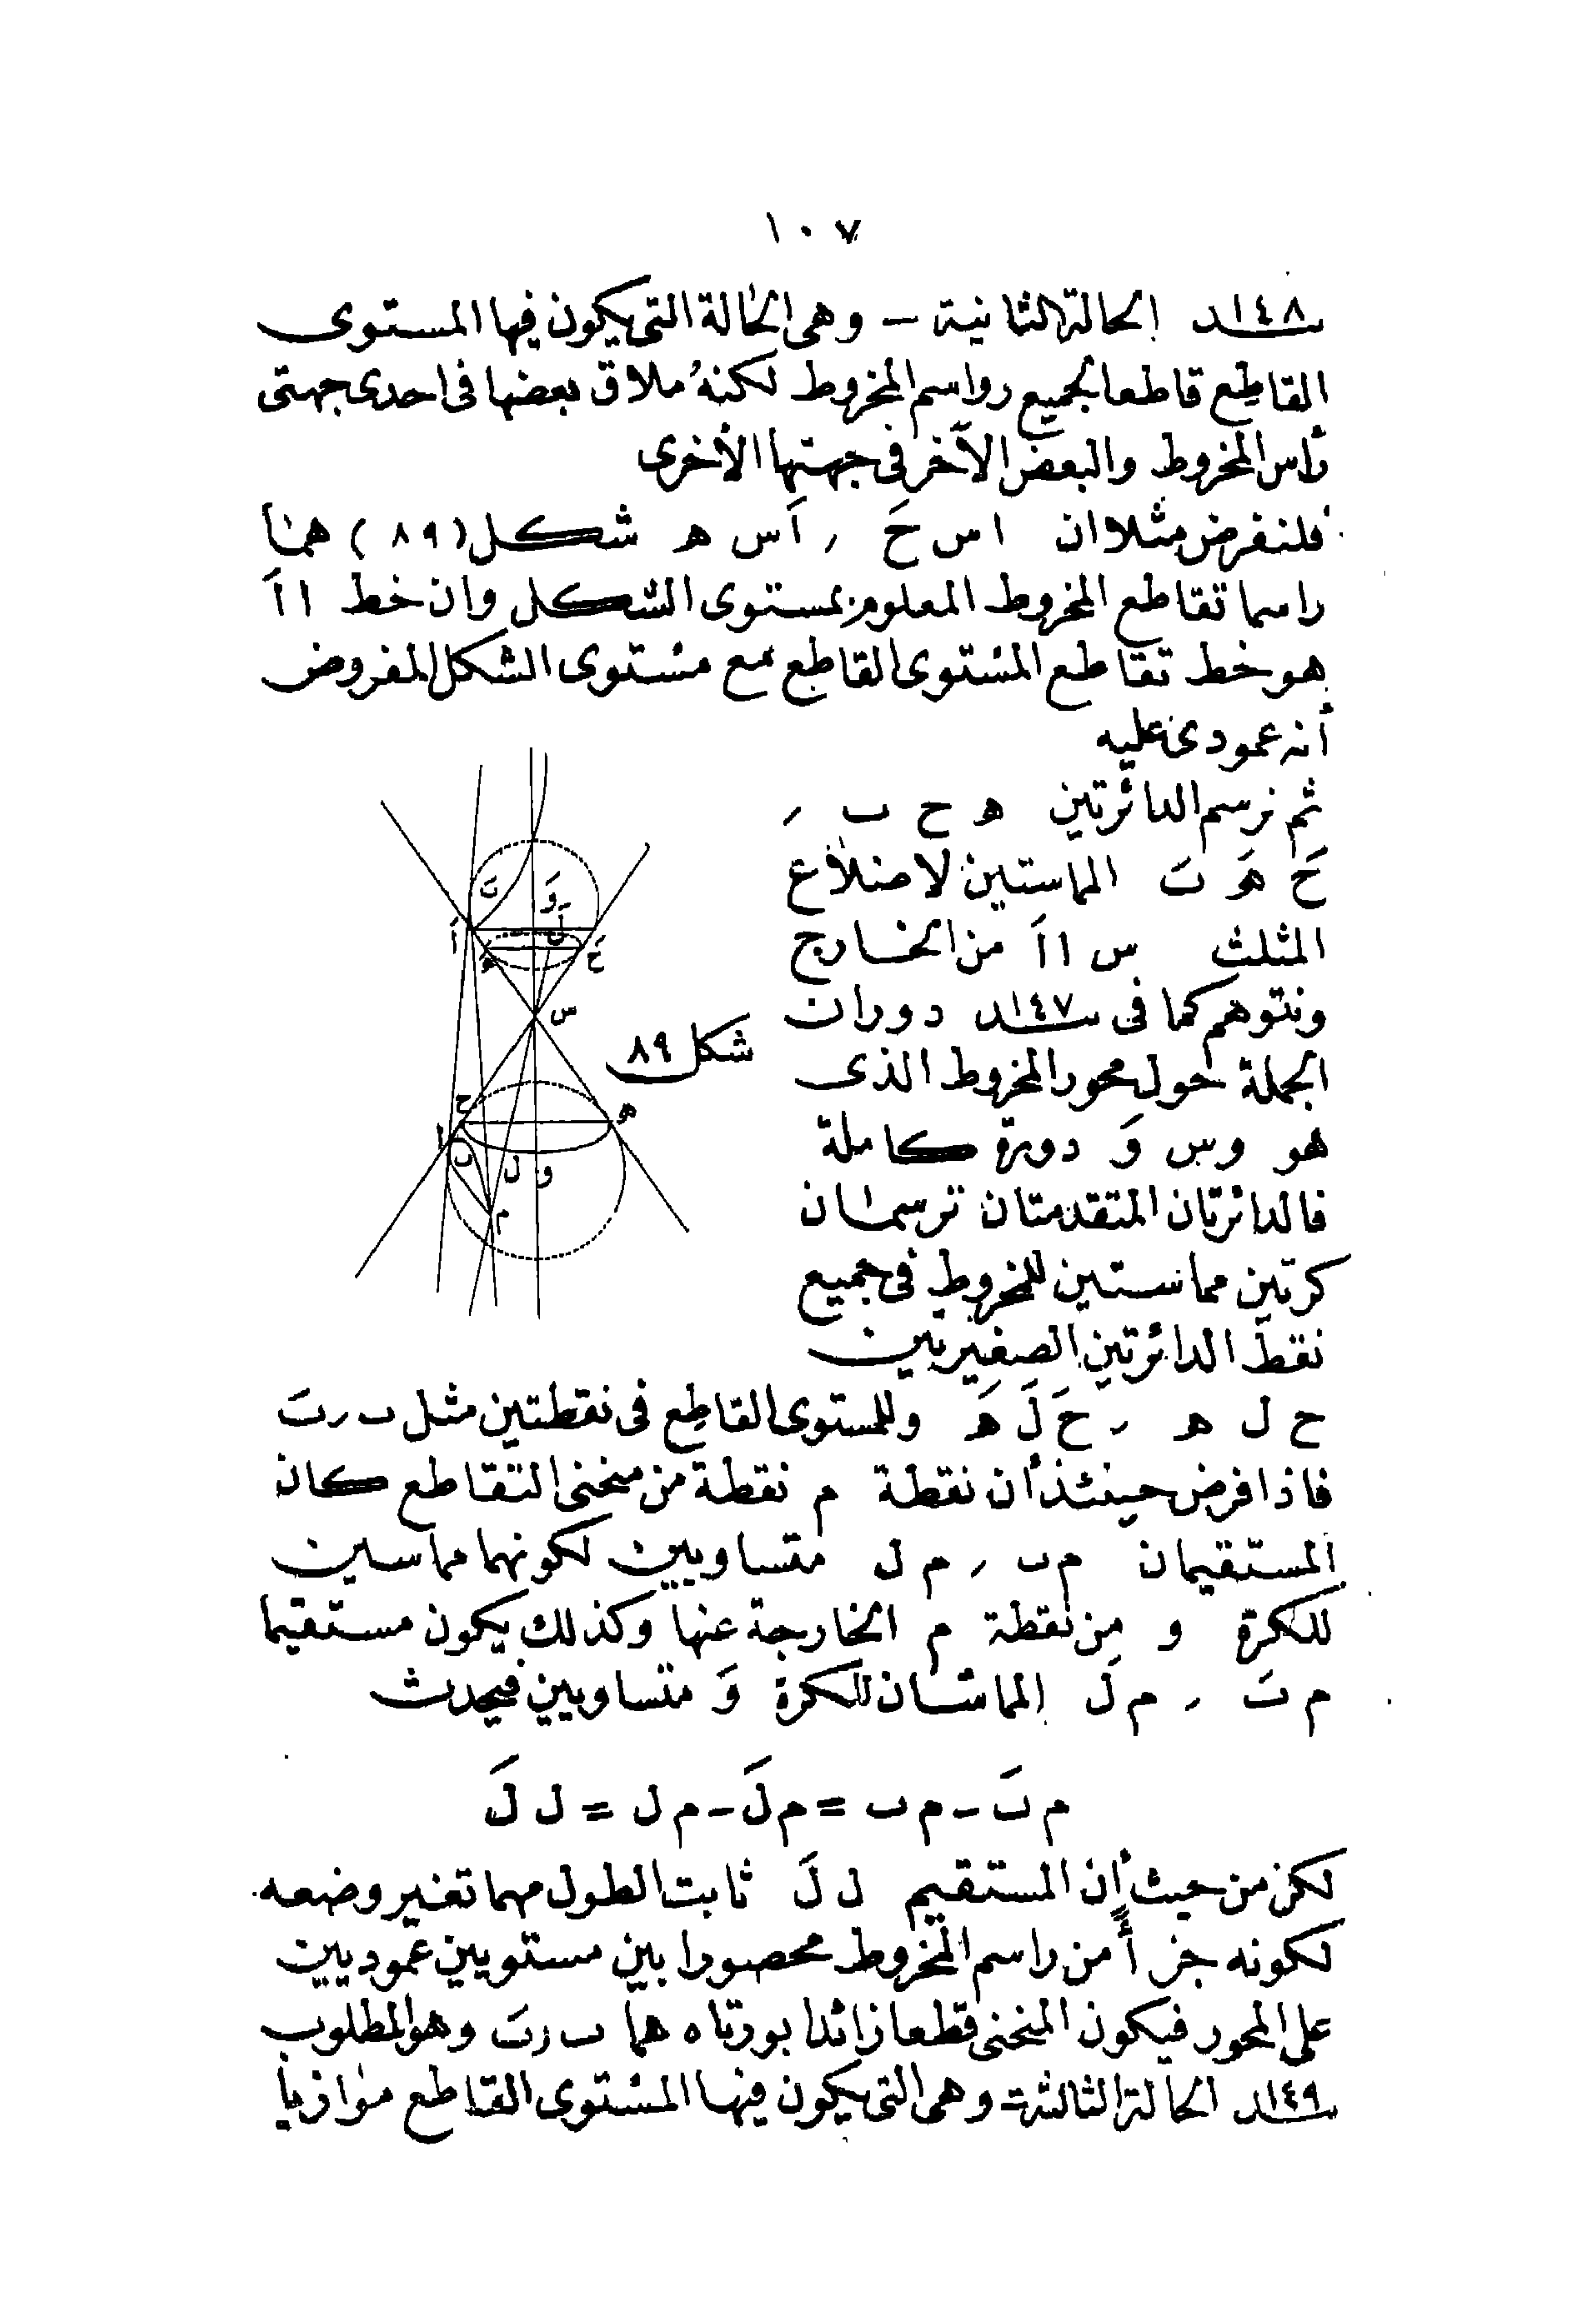 ١٠٧
١٤٨ند الحالة الثانية – وهى الحالة التى يكون فيها المستوى
القاطع قاطعا لجميع رواسم المخروط لكنه ملاق بعضها فى احدى جهتى
رأس المخروط والبعض الآخر فى جهتها الأخرى
فلنفرض مثلا ان ا س حَ ر اَ س ه شكل (٨٩) هما
راسما تقاطع المخروط المعلوم بمستوى الشكل وان خط ا اَ
هو خط تقاطع المستوى القاطع مع مستوى الشكل المفروض
أنه عمودى عليه
ثم نرسم الدائرتين ه ح ب ر
حَ هَ بَ المماستين لاضلاع
المثلث س ا اَ من الخارج
ونتوهم كما فى ١٤٧ند دوران
الجملة حول محور المخروط الذى
هو و س وَ دورة كاملة
فالدائرتان المتقدمتان ترسمان
كرتين مماستين للمخروط فى جميع
نقط الدائرتين الصغيرتين
اَ بَ وَ لَ هَ حَ س ح ه ا ب ل و م
شكل ٨٩
ح ل ه ر حَ لَ هَ وللمستوى القاطع فى نقطتين مثل ب ر بَ
فاذا فرض حينئذ أن نقطة م نقطة من منحنى التقاطع كان
المستقيمان م ب ر م ل متساويين لكونهما مماسين
للكرة و من نقطة م الخارجة عنها وكذلك يكون مستقيما
م بَ ر م لَ المماسان للكرة وَ متساويين فيحدث
م بَ – م ب = م لَ – م ل = ل لَ
لكن من حيث أن المستقيم ل لَ ثابت الطول مهما تغير وضعه
لكونه جزأ من راسم المخروط محصورا بين مستويين عموديين
على المحور فيكون المنحنى قطعا زائدا بورتاه هما ب ر بَ وهو المطلوب
١٤٩ند الحالة الثالثة – وهى التى يكون فيها المستوى القاطع موازيا